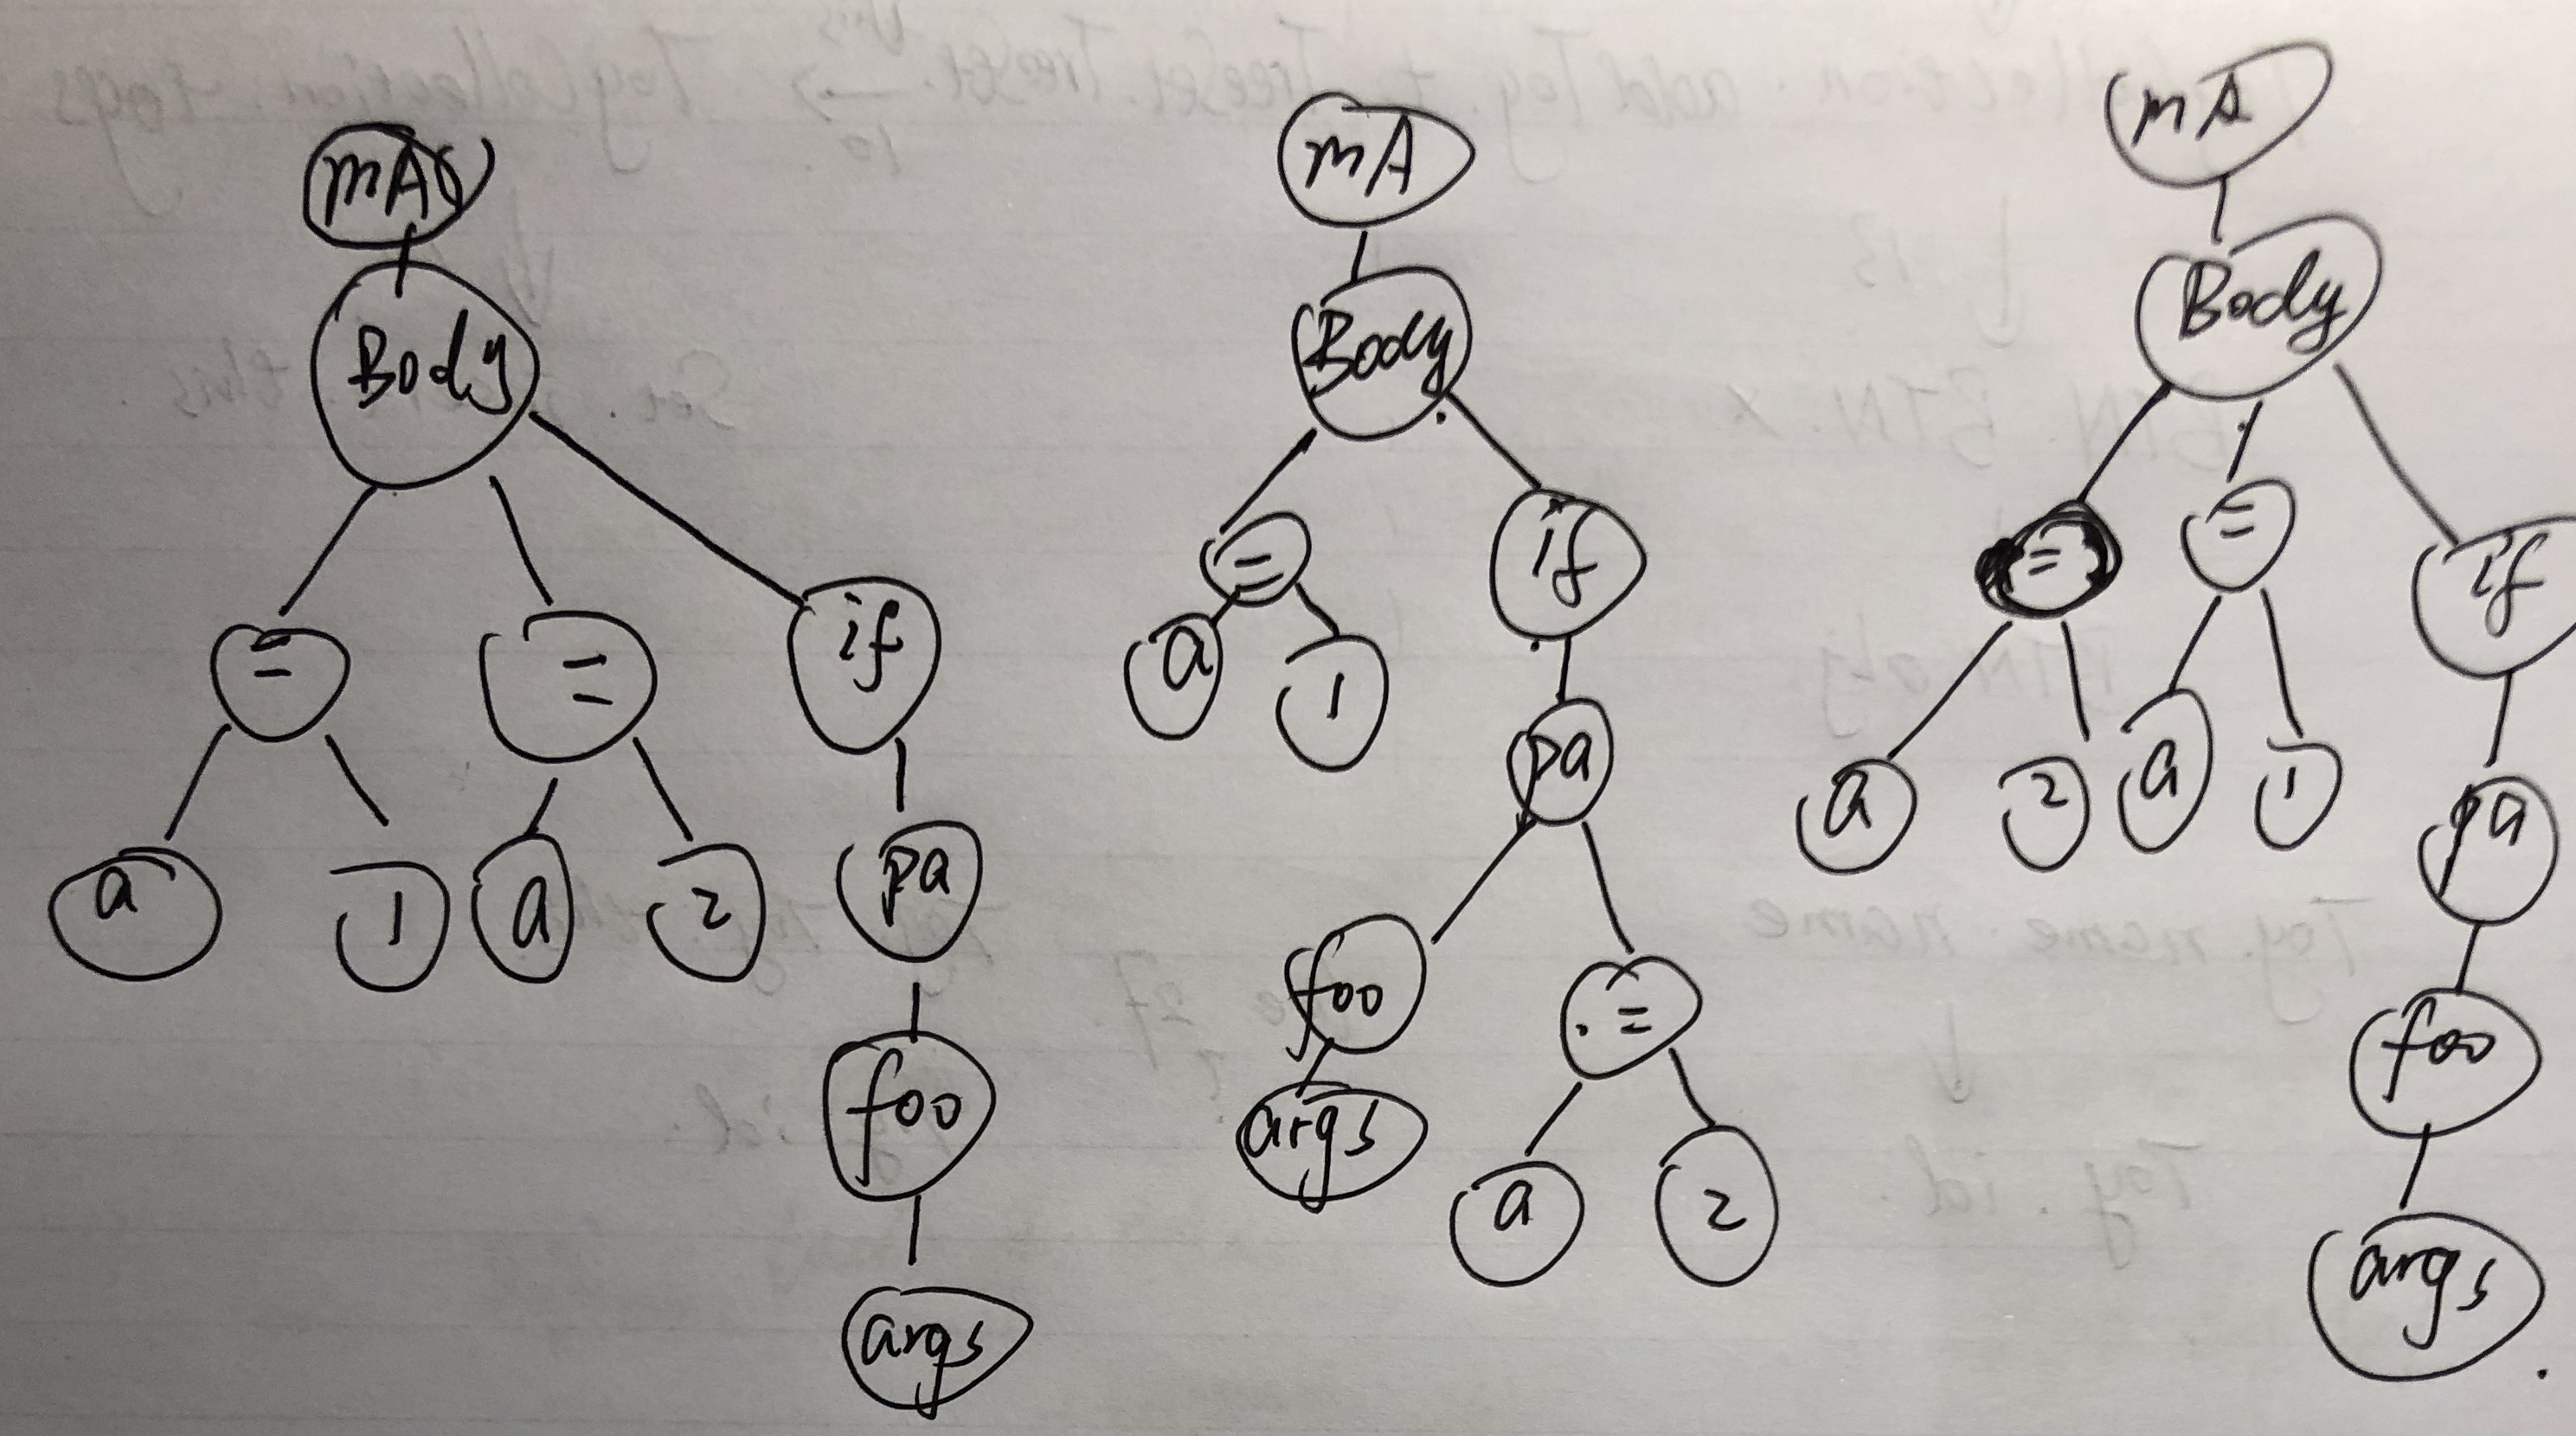 mA()
Body
=
=
if
a
1
a
2
pa
foo
args
mA
Body
=
if
a
1
pa
foo
=
args
a
2
mA
Body
=
=
if
a
2
a
1
pa
foo
args